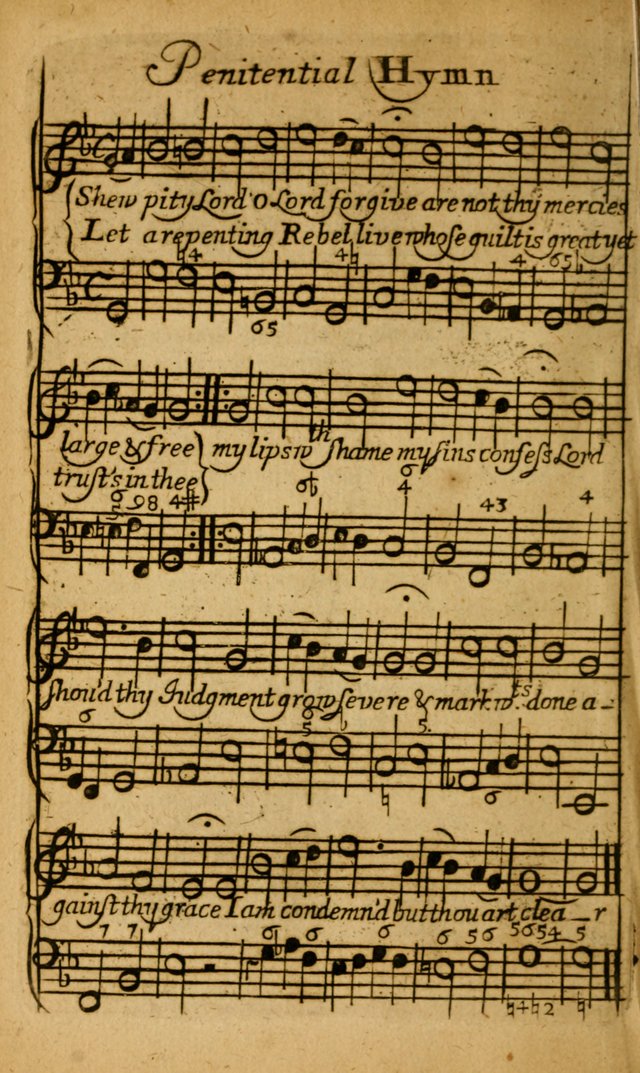 Penitential Hymn
Shew pity Lord O Lord forgive are not thy mercies
Let a repenting Rebel live whose guilt is great yet
♮4 4♮ 4 65♭
65
large & free my lips wth shame my sins confess Lord
trust's in thee
6 6
5 98 4# 6♭ 4 43 4
shou'd thy Judgment grow severe & mark wts done a-
6 6 ♭
5 5
♮ 6
gainst thy grace I am condemn'd but thou art clea-r
7 7 6 6 6 6 56 5654 5
♮4♮2 ♮